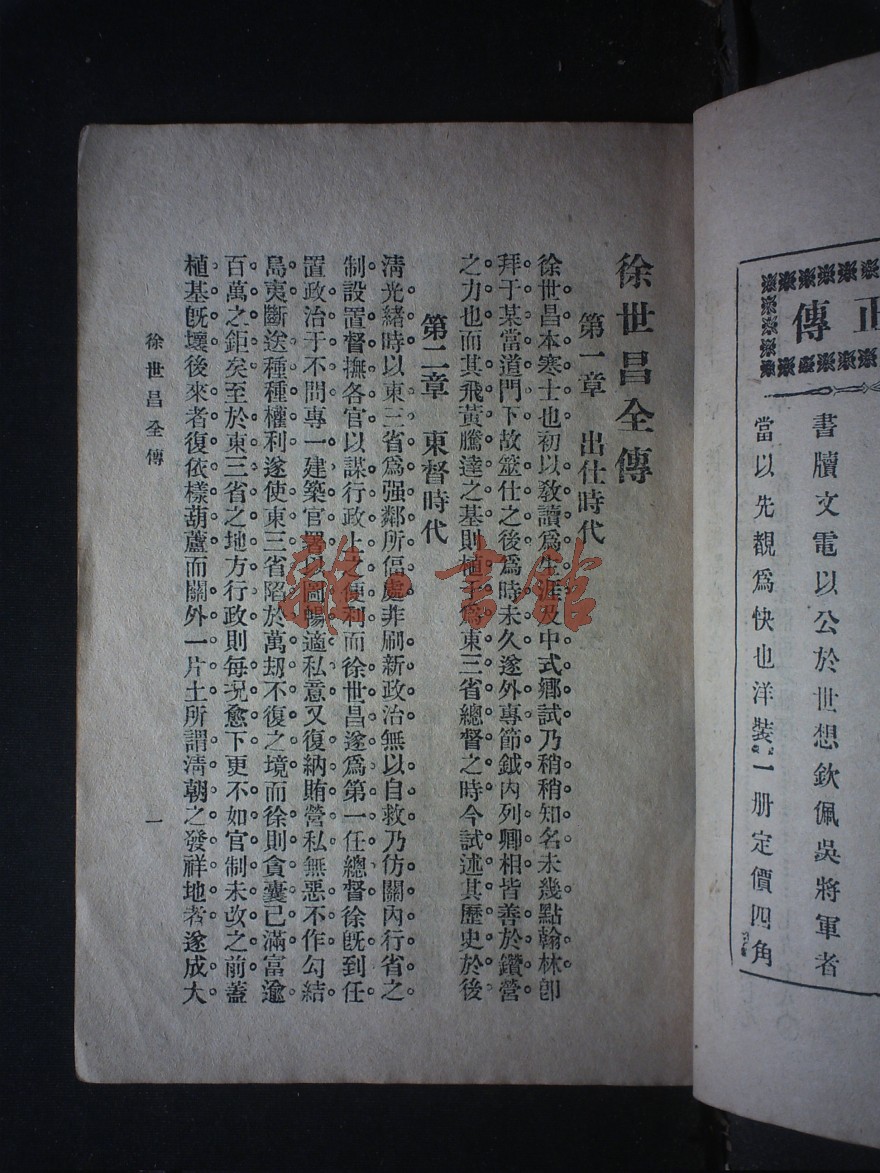 正傳
書牘文電以公於世想欽佩吳將軍者
當以先覩爲快也洋裝一册定價四角
徐世昌全傳
第一章 出仕時代
徐世昌本寒士也初以敎讀爲生涯及中式鄉試乃稍稍知名未幾點翰林卽
拜于某當道門下故筮仕之後爲時未久遂外專節鉞內列卿相皆善於鑽營
之力也而其飛黃騰達之基則植于爲東三省總督之時今試述其歷史於後
第二章 東督時代
淸光緖時以東三省爲强鄰所偪處非刷新政治無以自救乃仿關內行省之
制設置督撫各官以謀行政上之便利而徐世昌遂爲第一任總督徐旣到任
置政治于不問專一建築官署以圖暢適私意又復納賄營私無惡不作勾結
島夷斷送種種權利遂使東三省陷於萬劫不復之境而徐則貪囊已滿富逾
百萬之鉅矣至於東三省之地方行政則每況愈下更不如官制未改之前蓋
植基旣壞後來者復依樣葫蘆而關外一片土所謂淸朝之發祥地者遂成大
徐世昌全傳
一
雜·書館